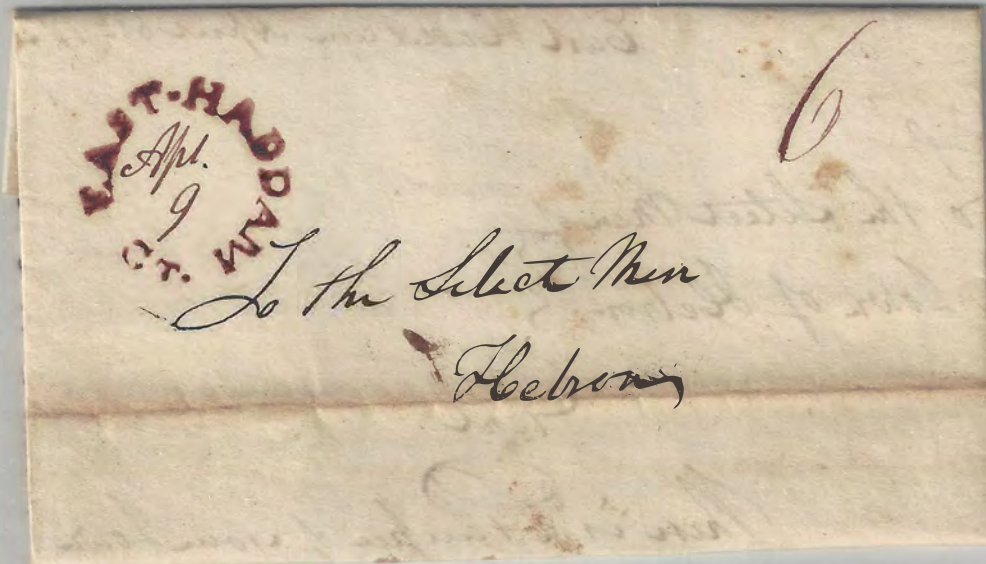 EAST-HADDAM CT.
Apl.
9
6
To the Select Men
Hebron